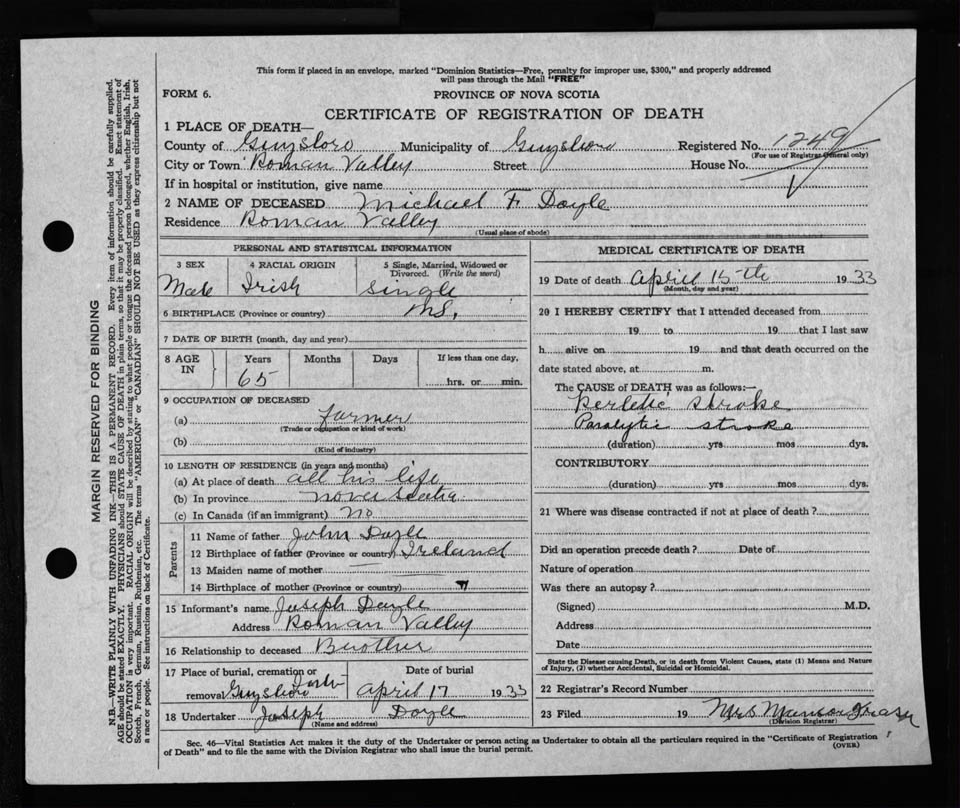 This form if placed in an envelope, marked "Dominion Statistics—Free, penalty for improper use, $300," and properly addressed
will pass through the Mail "FREE"
FORM 6.
PROVINCE OF NOVA SCOTIA
CERTIFICATE OF REGISTRATION OF DEATH
1 PLACE OF DEATH—
County of Guysboro Municipality of Guysboro Registered No. 1249
(For use of Registrar General only)
City or Town Roman Valley Street House No.
If in hospital or institution, give name
2 NAME OF DECEASED Michael F Doyle
Residence Roman Valley
(Usual place of abode)
PERSONAL AND STATISTICAL INFORMATION
3 SEX 4 RACIAL ORIGIN 5 Single, Married, Widowed or
Divorced. (Write the word)
Male Irish Single
6 BIRTHPLACE (Province or country) N.S.
7 DATE OF BIRTH (month, day and year)
8 AGE IN Years Months Days If less than one day,
65 hrs. or min.
9 OCCUPATION OF DECEASED
(a) farmer
(Trade or occupation or kind of work)
(b)
(Kind of industry)
10 LENGTH OF RESIDENCE (in years and months)
(a) At place of death all his life
(b) In province nova scotia
(c) In Canada (if an immigrant) no
Parents
11 Name of father John Doyle
12 Birthplace of father (Province or country) Ireland
13 Maiden name of mother —
14 Birthplace of mother (Province or country)
15 Informant's name Joseph Doyle
Address Roman Valley
16 Relationship to deceased Brother
17 Place of burial, cremation or Date of burial
removal Guysboro April 17 1933
18 Undertaker Joseph Doyle
(Name and address)
MEDICAL CERTIFICATE OF DEATH
19 Date of death April 15th 1933
(Month, day and year)
20 I HEREBY CERTIFY that I attended deceased from
19 to 19 that I last saw
h alive on 19 and that death occurred on the
date stated above, at m.
The CAUSE OF DEATH was as follows:—
stroke
Paralytic stroke
(duration) yrs mos dys.
CONTRIBUTORY
(duration) yrs. mos dys.
21 Where was disease contracted if not at place of death?
Did an operation precede death? Date of
Nature of operation
Was there an autopsy?
(Signed) M.D.
Address
Date
State the Disease causing Death, or in death from Violent Causes, state (1) Means and Nature
of Injury, (2) whether Accidental, Suicidal or Homicidal.
22 Registrar's Record Number
23 Filed 19 Mrs
(Division Registrar)
Sec. 46—Vital Statistics Act makes it the duty of the Undertaker or person acting as Undertaker to obtain all the particulars required in the "Certificate of Registration
of Death" and to file the same with the Division Registrar who shall issue the burial permit. (OVER)
MARGIN RESERVED FOR BINDING
N.B.—WRITE PLAINLY WITH UNFADING INK—THIS IS A PERMANENT RECORD. Every item of information should be carefully supplied.
AGE should be stated EXACTLY. PHYSICIANS should STATE CAUSE OF DEATH in plain terms, so that it may be properly classified. Exact statement of
OCCUPATION is very important. RACIAL ORIGIN will be described by stating to what people or tongue the deceased person belonged, whether English, Irish,
Scotch, French, German, Russian, Ruthenian, etc. The terms "AMERICAN" or "CANADIAN" SHOULD NOT BE USED as they express citizenship but not
a race or people. See instructions on back of Certificate.